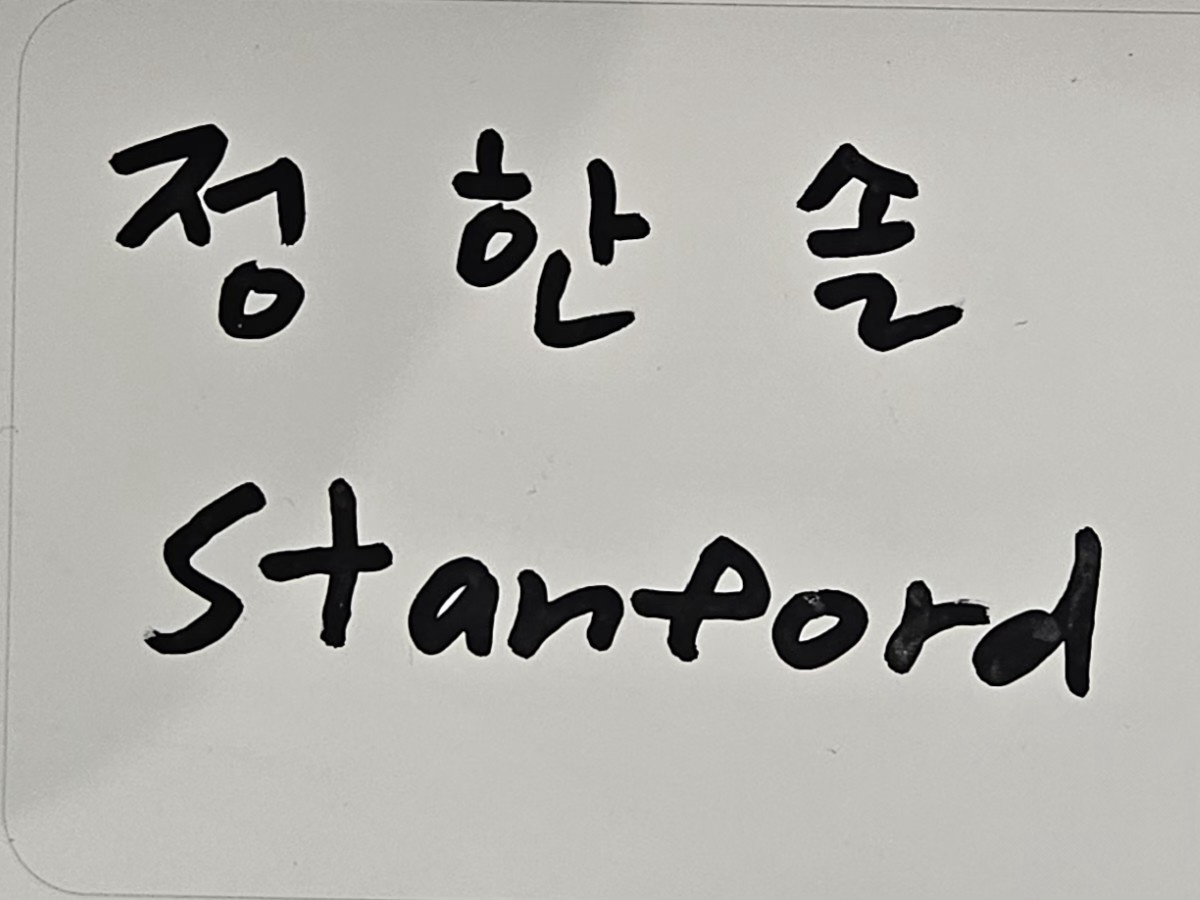 정한솔
Stanford